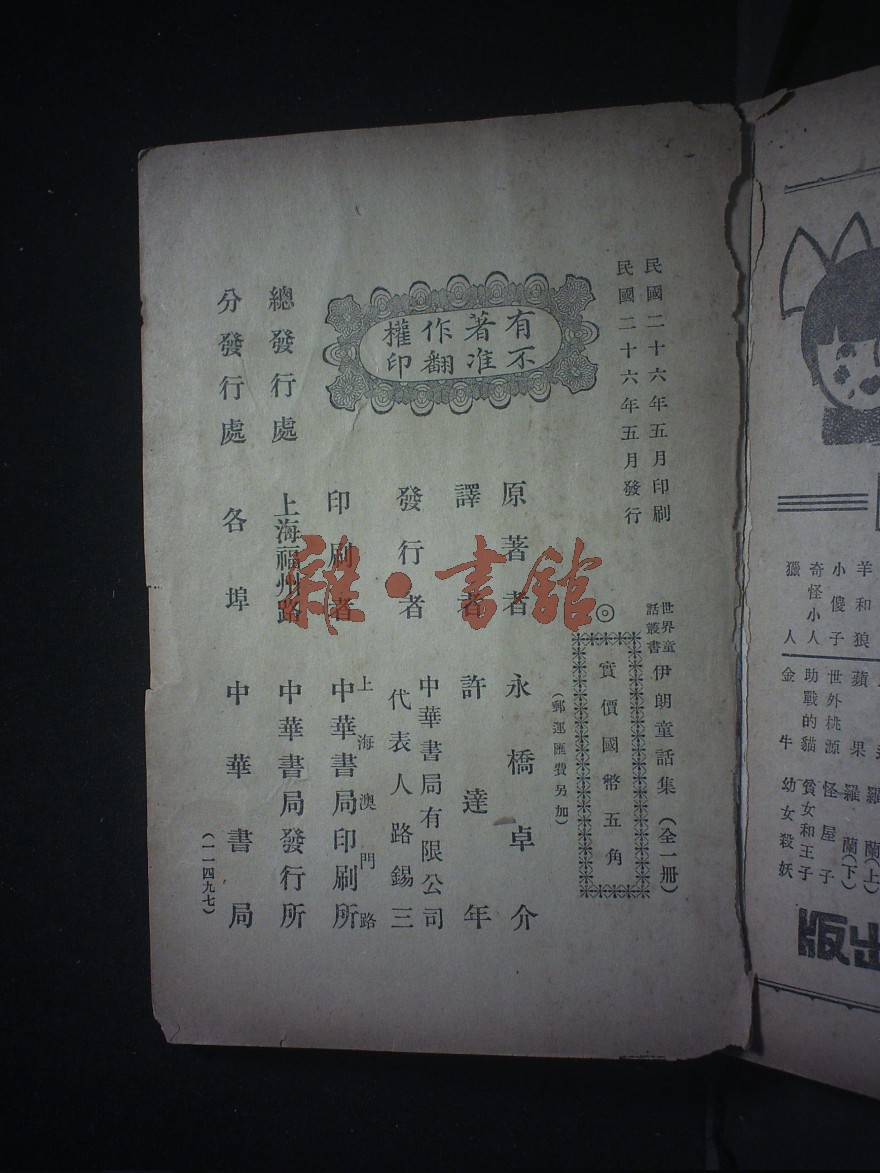 民國二十六年五月印刷
民國二十六年五月發行
世界童
話叢書
伊朗童話集（全一冊）
◎
實價國幣五角
（郵運匯費另加）
有著作權
不准翻印
原著者 永橋卓介
譯者 許達年
發行者 中華書局有限公司
代表人路錫三
印刷者 上海澳門路
中華書局印刷所
總發行處 上海福州路 中華書局發行所
分發行處 各埠 中華書局
（一一四九七）
雜·書館
羊和狼 蘋果 羅蘭（下）
小傻子 世外桃源 怪屋子
奇怪小人 助戰的貓 貧女和王子
獵人 金牛 幼女殺妖
羅蘭（上）
出版